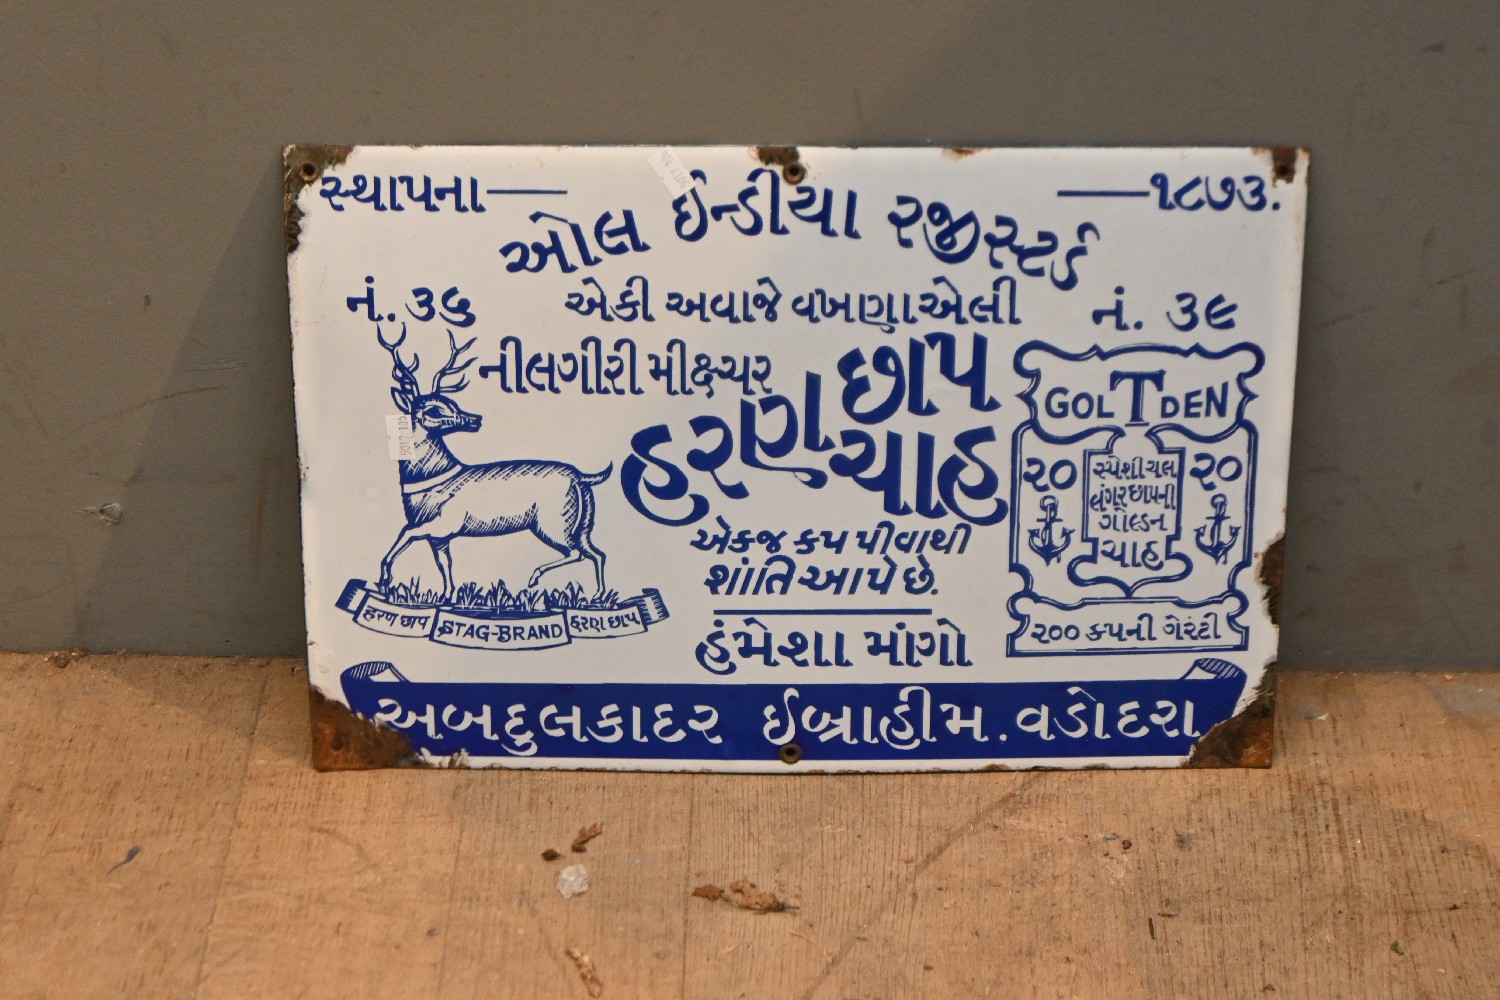 સ્થાપના — — ૧૮૭૩.
ઓલ ઈન્ડીયા રજીસ્ટર્ડ
નં. ૩૬ એકી અવાજે વખણાએલી નં. ૩૯
નીલગીરી મીક્ષ્ચર
હરણ છાપ
ચાહ
એકજ કપ પીવાથી
શાંતિ આપે છે.
હંમેશા માંગો
હરણ છાપ STAG-BRAND હરણ છાપ
GOL T DEN
૨૦ ૨૦
સ્પેશીયલ
લંગર છાપની
ગોલ્ડન
ચાહ
૨૦૦ કપની ગેરંટી
અબદુલકાદર ઈબ્રાહીમ. વડોદરા